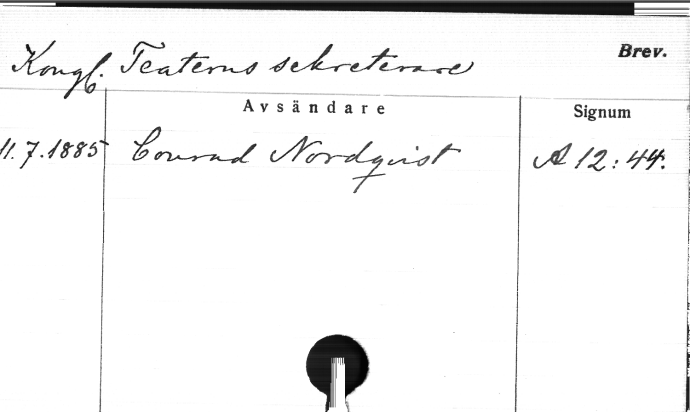 Brev.
Kongl. Teaterns sekreterare
Avsändare Signum
11.7.1885 Conrad Nordqvist A 12:44.